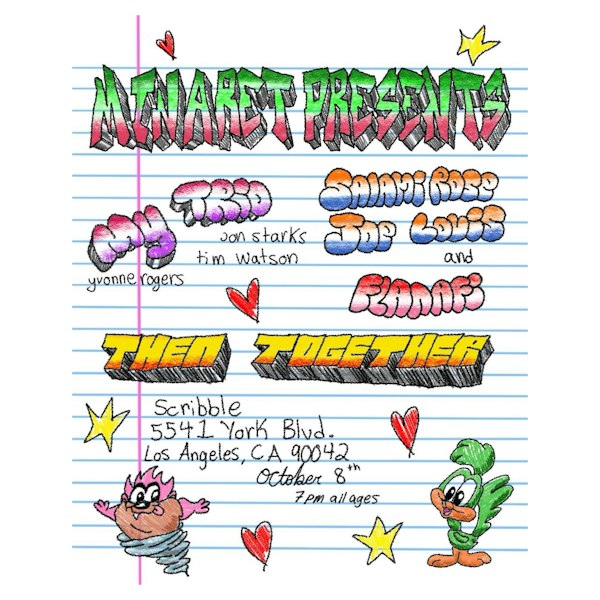 MINARET PRESENTS
MY TRIO
yvonne rogers
jon starks
tim watson
SALAMI ROSE
JOE LOUIS
and
FLANAFI
THEN TOGETHER
Scribble
5541 York Blvd.
Los Angeles, CA 90042
October 8th
7pm all ages